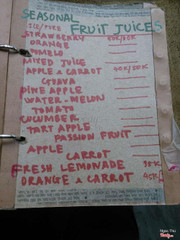 SEASONAL
FRUIT JUICES
STRAWBERRY
ORANGE
POMELO
MIXED JUICE
APPLE & CARROT
GUAVA
PINE APPLE
WATER-MELON
TOMATO
CUCUMBER
TART APPLE
PASSION FRUIT
APPLE
CARROT
FRESH LEMONADE 30K
ORANGE & CARROT